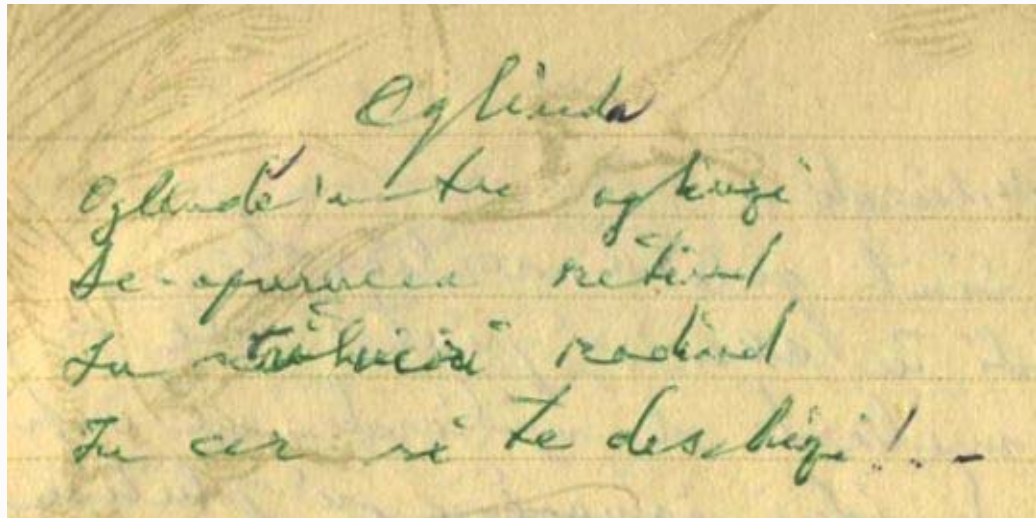 Oglinda
Oglindă 'ntre oglinzi
Se-apururea
În străluciri radiind
În cer să te deschizi! -